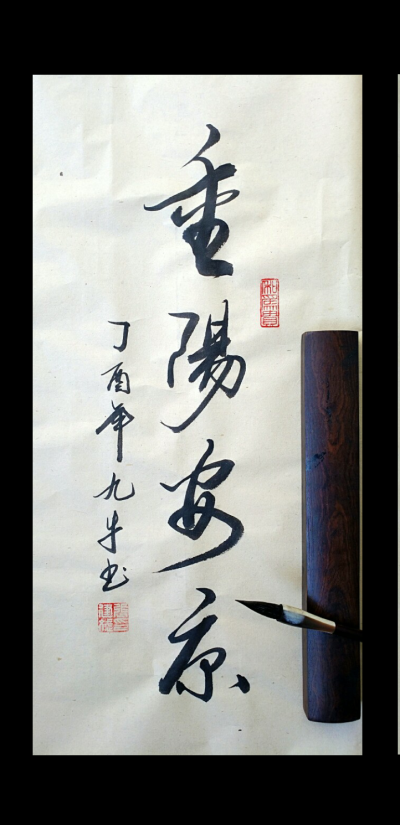 重陽安康
丁酉年九牛书